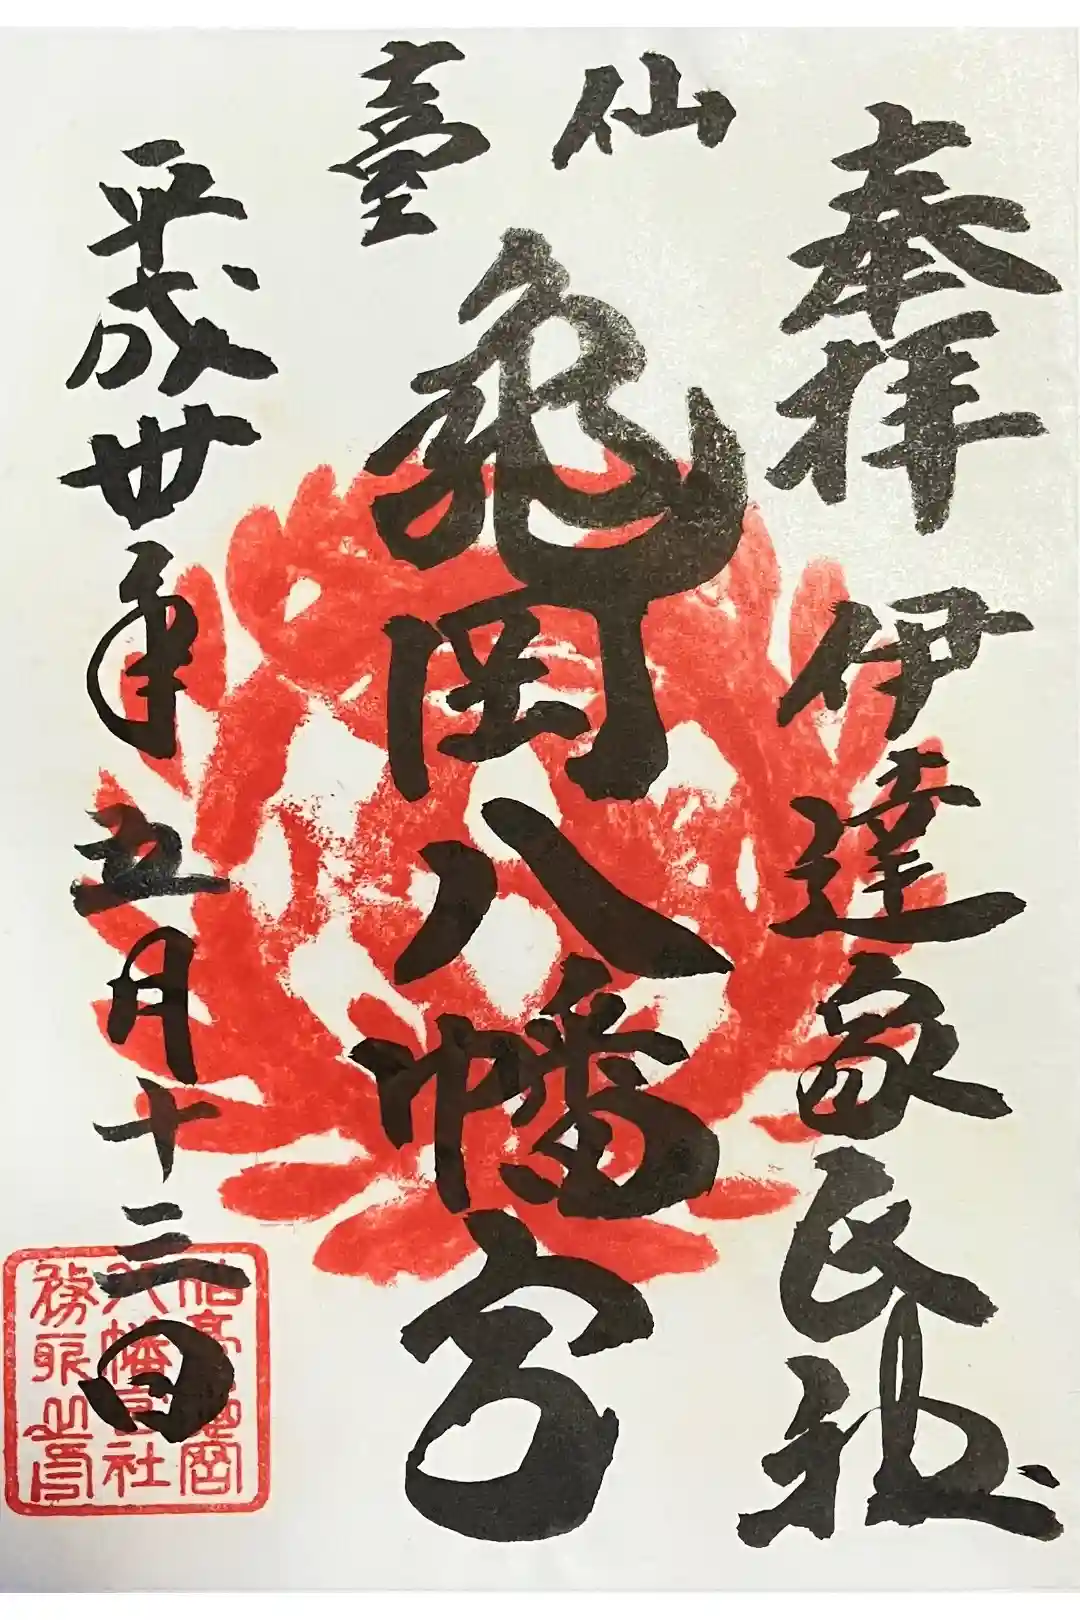 奉拝 伊達家氏社
仙臺
亀岡八幡宮
平成卅年五月十三日
八幡宮社
務所之印